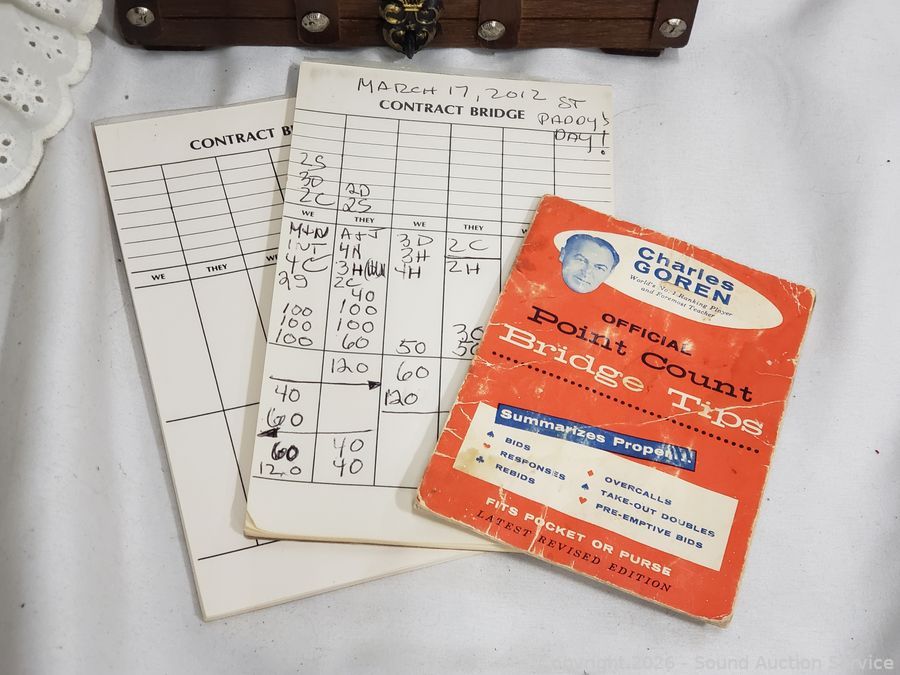 MARCH 17, 2012 ST
PADDY'S
DAY!
CONTRACT BRIDGE
2S
3D 2D
2C 2S
WE THEY WE THEY
M+N A+J 3D 2C
1NT 4H 3H 2H
4C 3H 4H
2S 2C
40
100 100
100 100 30
100 60 50 50
120 60
40 120
60
60 40
120 40
CONTRACT
WE THEY
Charles
GOREN
World's No. 1 Ranking Player
and Foremost Teacher
OFFICIAL
Point Count
Bridge Tips
Summarizes Proper
BIDS
RESPONSES
REBIDS
OVERCALLS
TAKE-OUT DOUBLES
PRE-EMPTIVE BIDS
FITS POCKET OR PURSE
LATEST REVISED EDITION
Copyright 2026 - Sound Auction Service